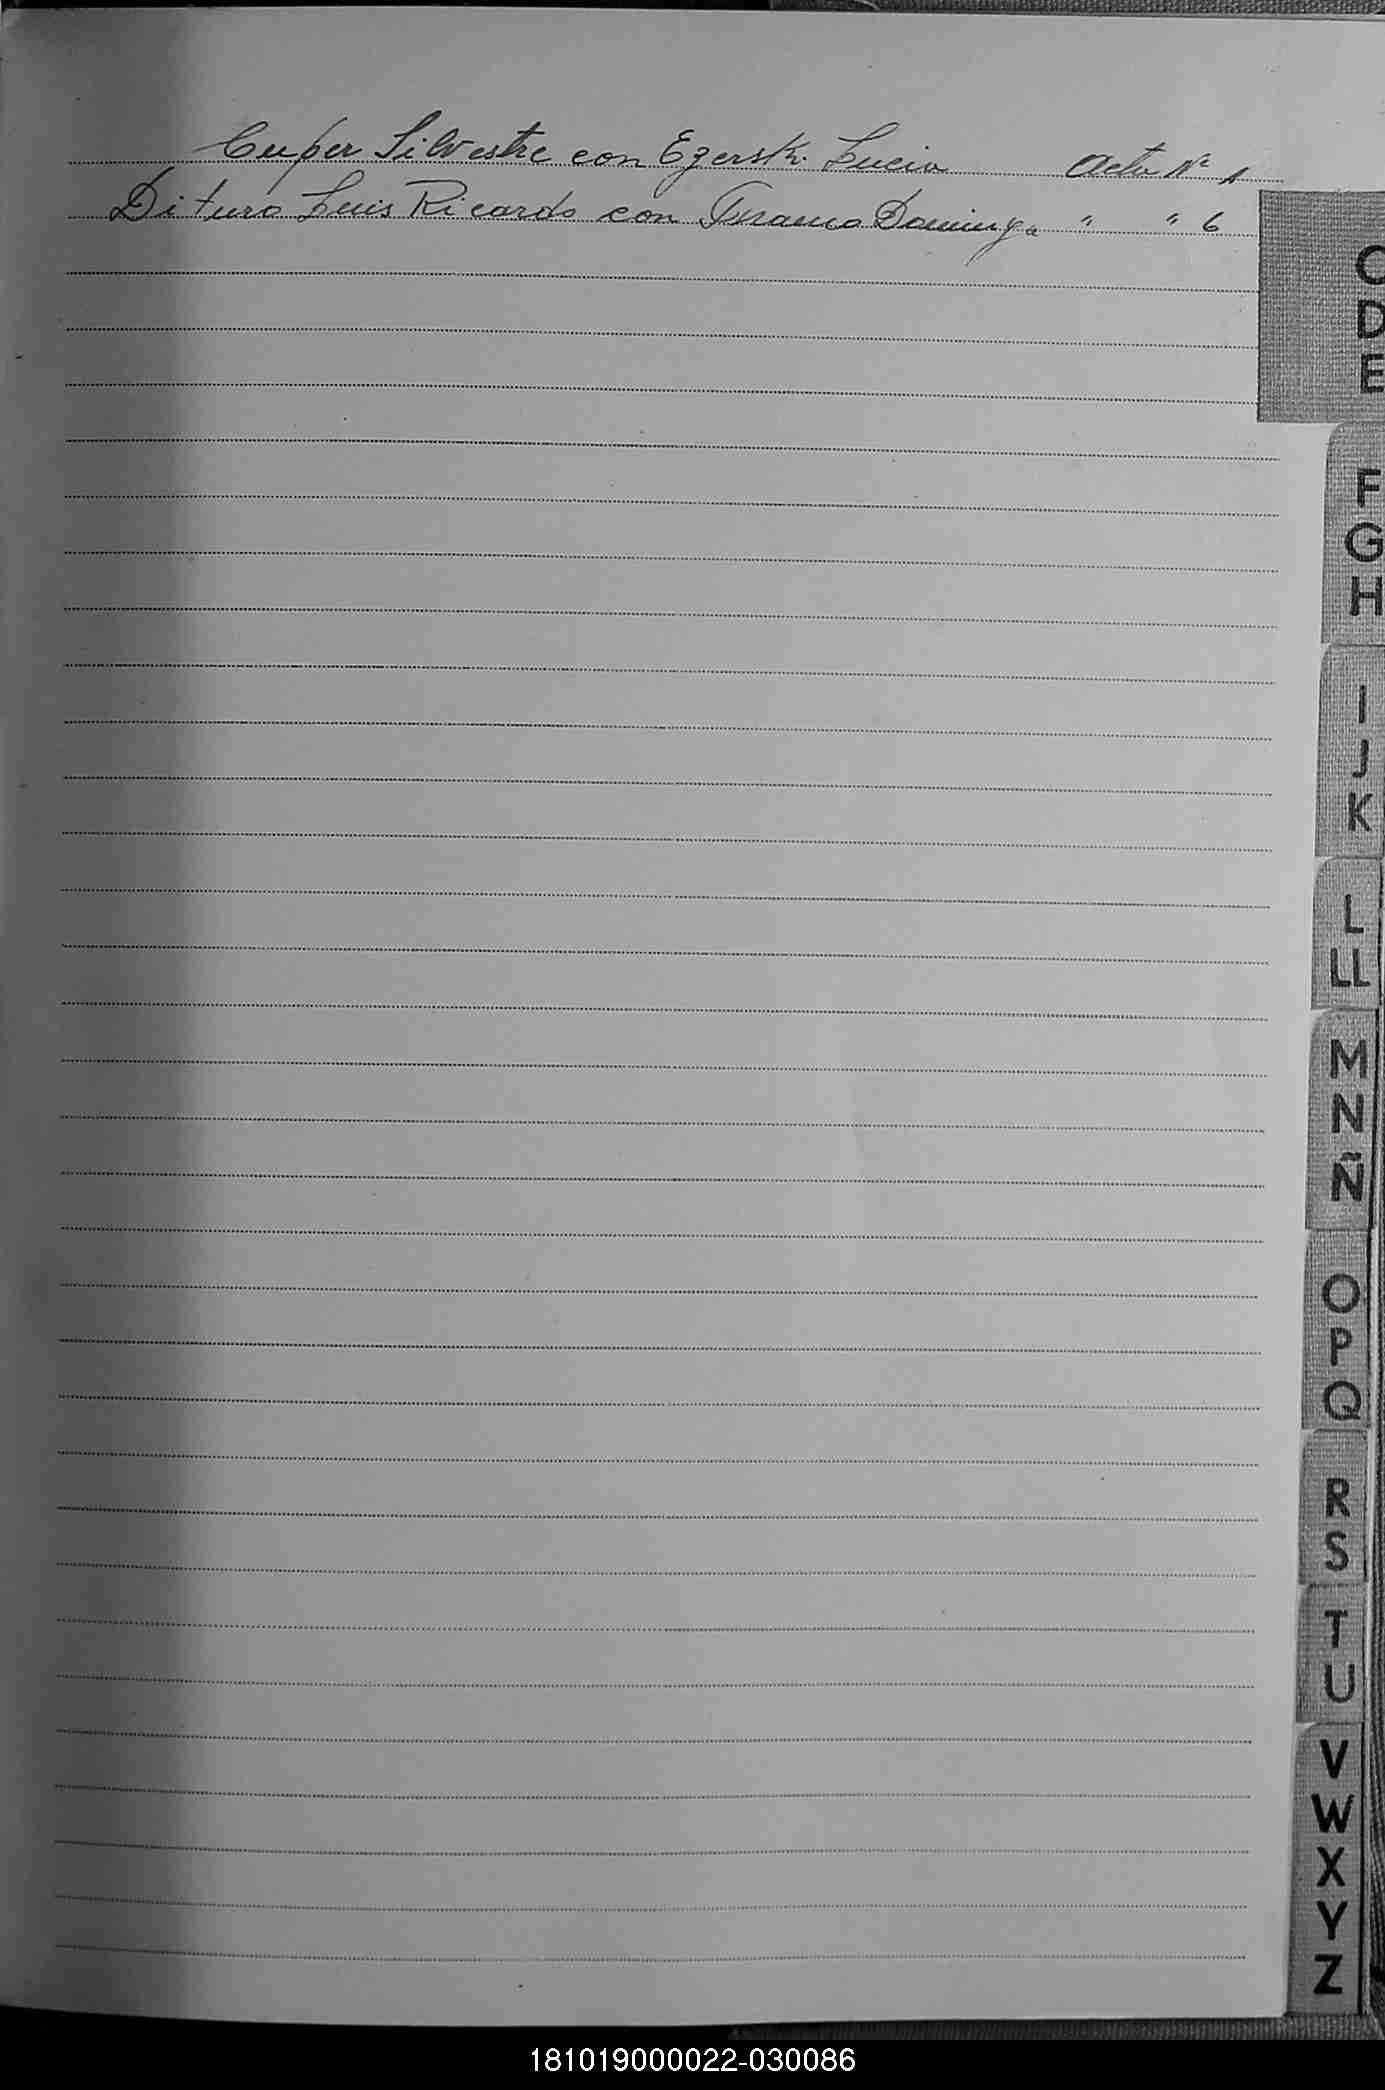 Cuper Silvestre con Ezerski Lucia Acta Nº 1
Dituro Luis Ricardo con Dominga " " 6
C
D
E
F
G
H
I
J
K
L
LL
M
N
Ñ
O
P
Q
R
S
T
U
V
W
X
Y
Z
181019000022-030086